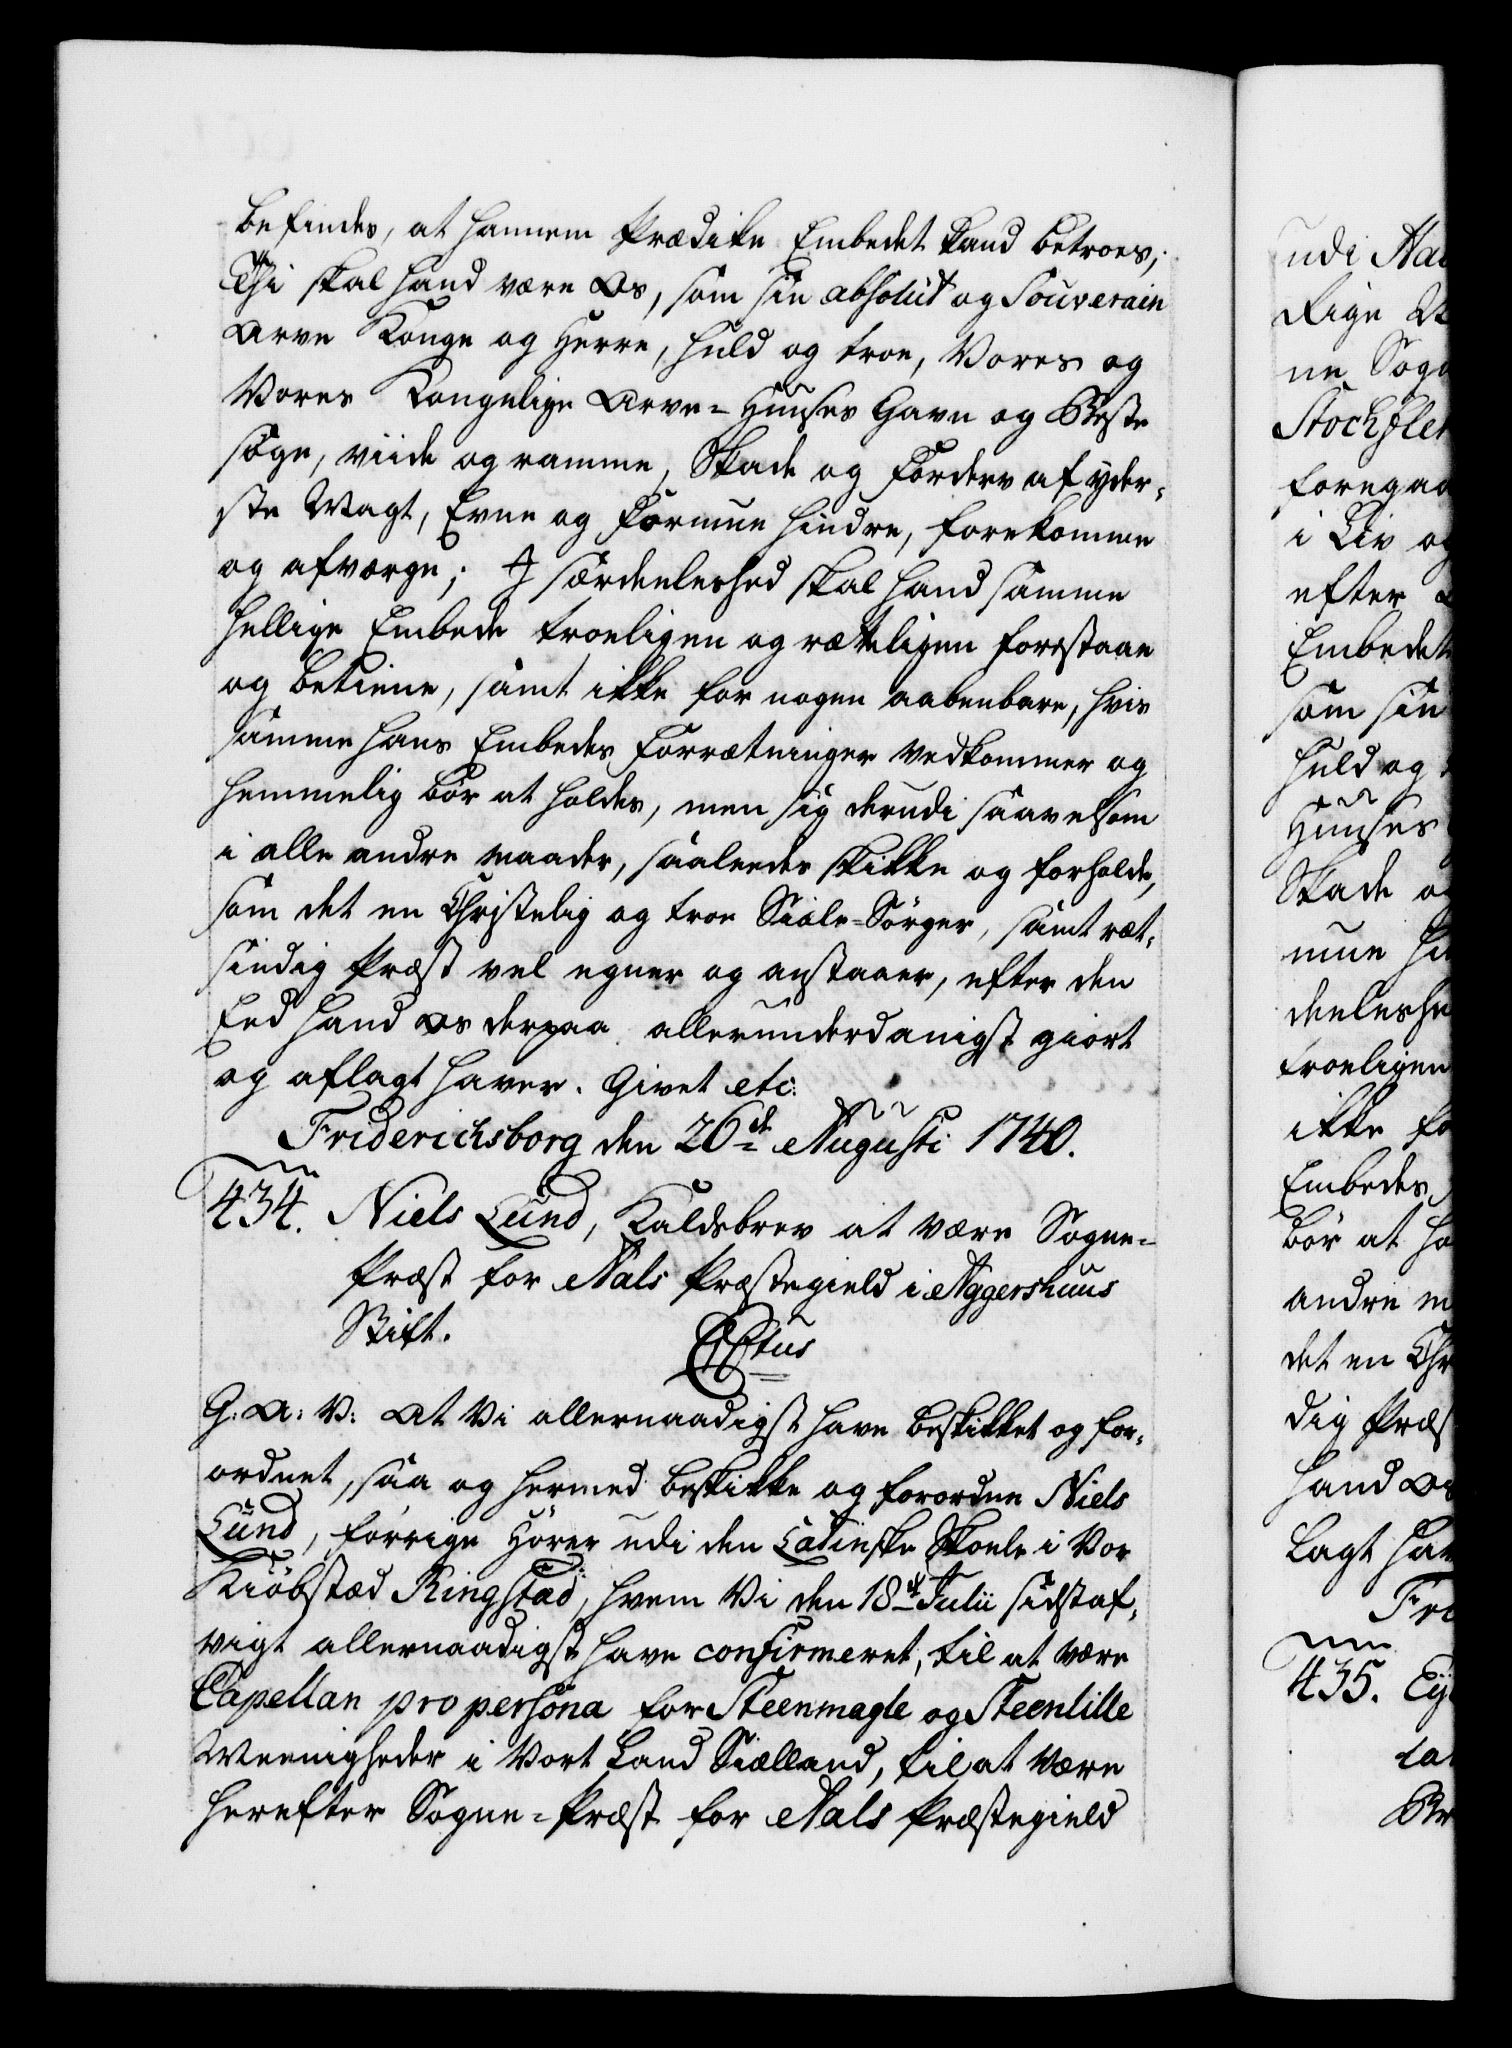 befindes, at hannem Prædike Embedet kand betroes;
Thi skal hand være Os, som sin absolut og Souverain
Arve Konge og Herre, huld og troe, Vores og
Vores Kongelige Arve-Huuses Gavn og Beste
søge, viide og ramme, Skade og Forderv af yder-
ste Magt, Evne og Formue hindre, forekomme
og afværge; J særdeeleshed skal hand samme
hellige Embede troeligen og rætteligen forestaae
og betiene, samt ikke for nogen aabenbare, hvis
samme hans Embedes Forrætninger vedkommer og
hemmelig bør at holdes, men sig derudi saavelsom
i alle andre maader, saaledes skikke og forholde,
som det en Christelig og troe Siæle-Sørger, samt ræt-
sindig Præst vel egner og anstaaer, efter den
Eed hand Os derpaa allerunderdanigst giort
og aflagt haver. Givet etc:
Friderichsborg den 26de Augusti 1740.
434. Niels Lund, Kaldsbrev at være Sogne-
Præst for Aals Præstegield i Aggershuus
Stift.
CStus
G: A: V: At Vi allernaadigst have beskikket og for-
ordnet, saa og hermed beskikke og forordne Niels
Lund, forrige Hører udi den Latinske Skoele i Vor
Kiøbstæd Ringstæd, hvem Vi den 18de Julii sidstaf-
vigt allernaadigst have confirmeret, til at være
Capellan pro persona for Steenmagle og Steenlille
Meenigheder i Vort Land Siælland, til at være
herefter Sogne-Præst for Aals Præstegield
udi
rige
ne
foregaa
i Liv og
efter
Embedet
som sin
huld og
Huuses
Skade og
mue
troeligen
ikke
Embedes
bør at
andre
det en
dig
hand
lagt
435.